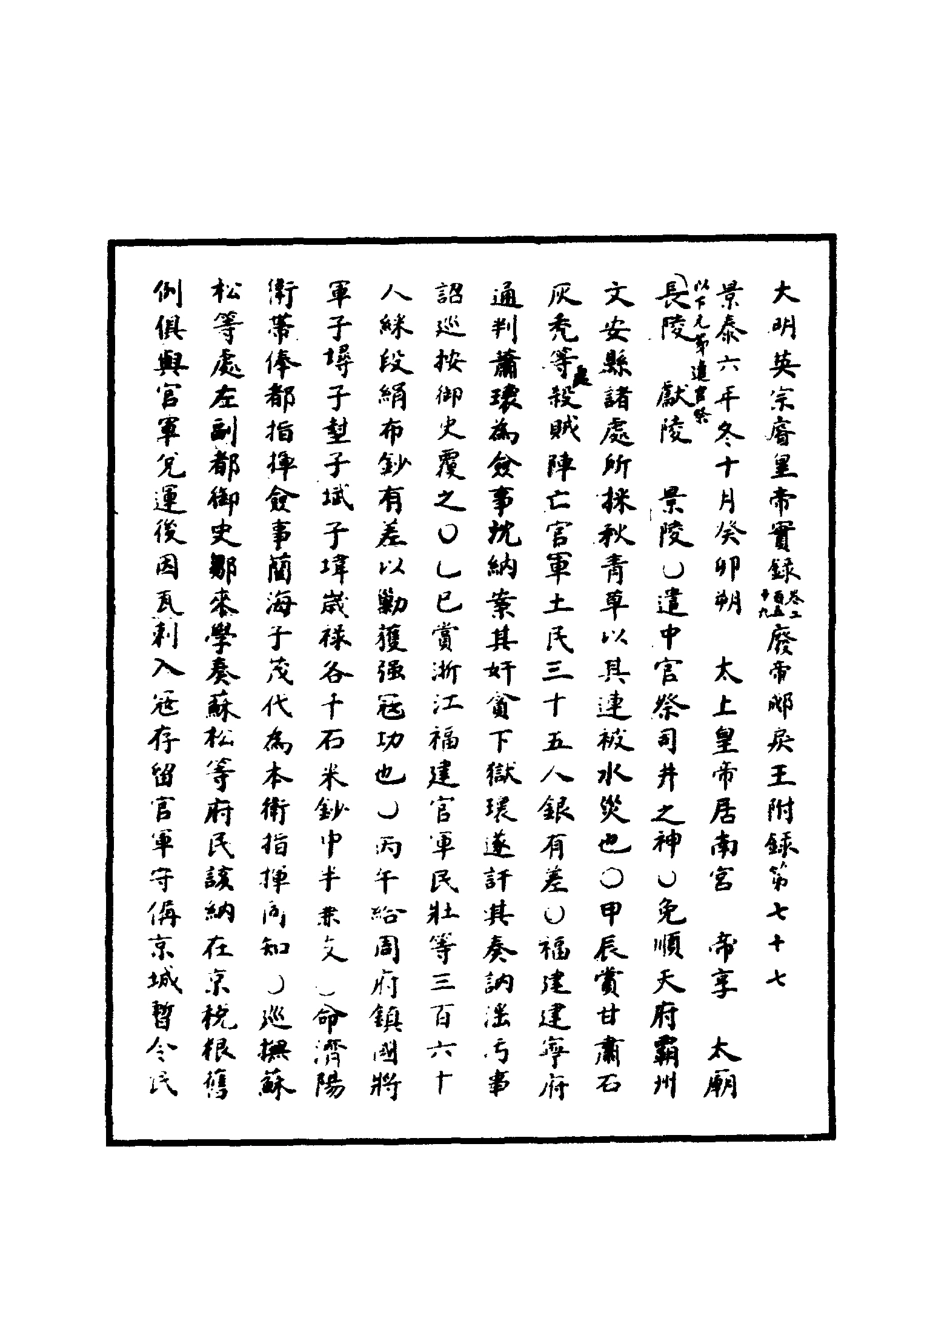 大明英宗睿皇帝實錄卷二百五十九廢帝郕戾王附錄第七十七
景泰六年冬十月癸卯朔　太上皇帝居南宮　帝享　太廟
以下元節遣官祭
長陵　獻陵　景陵○遣中官祭司井之神○免順天府霸州
文安縣諸處所採秋青草以其連被水災也○甲辰賞甘肅石
灰禿等處殺賊陣亡官軍土民三十五人銀有差○福建建寧府
通判蕭環為僉事沈納案其奸貪下獄環遂訐其奏訥濫亏事
詔巡按御史覆之○乙巳賞浙江福建官軍民壯等三百六十
人綵段絹布鈔有差以勦獲强冦功也○丙午給周府鎮國將
軍子㙷子墊子㙺子㙔歲祿各千石米鈔中半兼支○命濟陽
衛帶俸都指揮僉事藺海子茂代為本衛指揮同知○巡撫蘇
松等處左副都御史鄒來學奏蘇松等府民該納在京稅粮舊
例俱與官軍兌運後因瓦剌入冦存留官軍守備京城暫令民